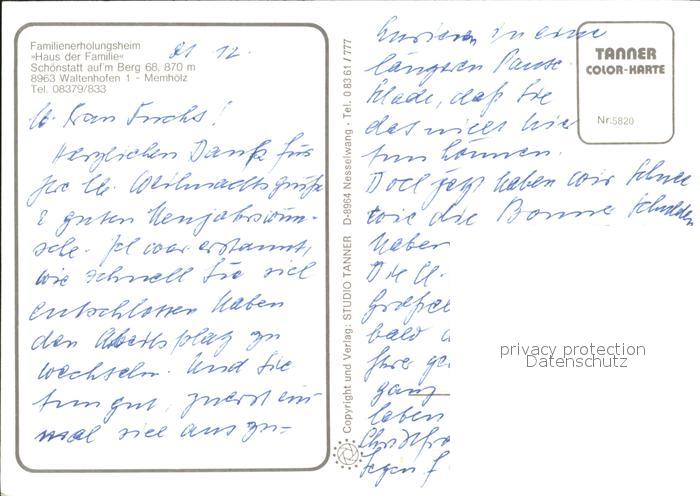 Familienerholungsheim
»Haus der Familie«
Schönstatt auf'm Berg 68, 870 m
8963 Waltenhofen 1 - Memhölz
Tel. 08379/833
21 12.
Lb. Frau Fuchs!
Herzlichen Dank für
Ihre lb. Weihnachtsgrüße
& guten Neujahrswün-
sche. Ich war erstaunt,
wie schnell Sie sich
entschlossen haben
den Arbeitsplatz zu
wechseln. Und Sie
tun gut, zuerst ein-
mal sich auszu-
Copyright und Verlag: STUDIO TANNER D-8964 Nesselwang · Tel. 0 83 61 / 777
kurieren in eine
längeren Pause.
Schade, daß Sie
das nicht hier
tun können.
Doch jetzt haben wir Schnee
wie die Bonner Schulden
haben
Die lb.
bald
Ihre
ganz
leben
TANNER
COLOR-KARTE
Nr. 5820
privacy protection
Datenschutz